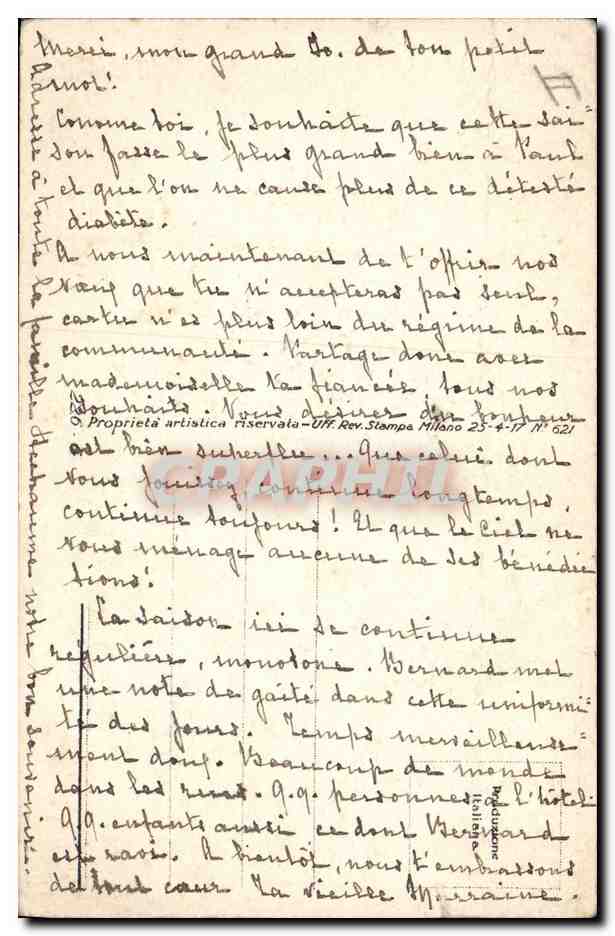 Merci, mon grand Jo. de ton petit
mot!
Comme toi, je souhaite que cette sai=
son fasse le plus grand bien à Paul
et que l'on ne cause plus de ce détesté
diabète.
A nous maintenant de t'offrir nos
vœux que tu n'accepteras pas seul,
car tu n'es plus loin du régime de la
communauté. Partage donc avec
mademoiselle ta fiancée tous nos
souhaits. Vous désirer du bonheur
Proprietà artistica riservata - Uff. Rev. Stampa Milano 25-4-17 N° 621
est bien superflu... Que celui dont
vous jouissez, continue longtemps,
CRAPHIL
continue toujours! Et que le Ciel ne
vous ménage aucune de ses bénédic
tions!
La saison ici se continue
régulière, monotone. Bernard met
une note de gaité dans cette uniformi=
té des jours. Temps merveilleuse=
ment doux. Beaucoup de monde
dans les rues. q.q. personnes à l'hôtel
q.q. enfants aussi ce dont Bernard
est ravi. A bientôt, nous t'embrassons
de tout cœur La vieille Marraine.
Produzione
Italiana
Adresse à toute la famille notre bon souvenir.